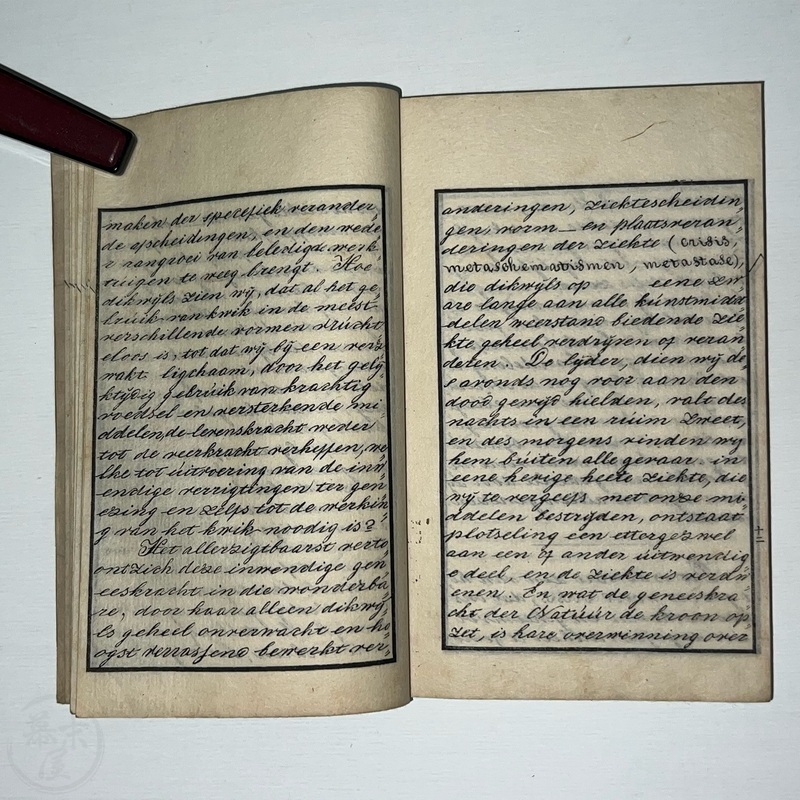 maken der spezefiek verander„
de afscheidingen, en den wede„
r aangroei van beledigde werk„
tuigen te weeg brengt. Hoe
dikwijls zien wij, dat al het ge„
bruik van kwik in de meest
verschillende vormen vrucht
eloos is, tot dat wij bij een verz„
wakt ligchaam, door het gelij„
ktijdig gebruik van krachtig
voedsel en versterkende mi„
ddelen, de levenskracht weder
tot de veerkracht verheffen, we„
lke tot uitvoering van de inw„
endige verrigtingen ter gen„
ezing en zelfs tot de werkin„
g van het kwik noodig is?
Het allerzigtbaarst verto„
ont zich deze inwendige gen„
eeskracht in die wonderba„
re, door haar alleen dikwij„
ls geheel onverwacht en ho„
ogst verrassend bewerkt ver„
anderingen, ziektescheidin„
gen, vorm_ en plaatsveran„
deringen der ziekte (crisis,
metaschematismen, metastase),
die dikwijls op eene zw„
are lange aan alle kunstmidd„
delen weerstand biedende zie„
kte geheel verdrijven of veran„
deren. De lijder, dien wij de„
s avonds nog voor aan den
dood gewijd hielden, valt des
nachts in een ruim zweet,
en des morgens vinden wij
hem buiten alle gevaar. in
eene hevige heete ziekte, die
wij te vergeefs met onze mi„
ddelen bestrijden, ontstaat
plotseling een ettergezwel
aan een of ander uitwendig
e deel, en de ziekte is verdw„
enen. En wat de geneeskra„
cht der Natuur de kroon op„
zet, is hare overwinning over
十二